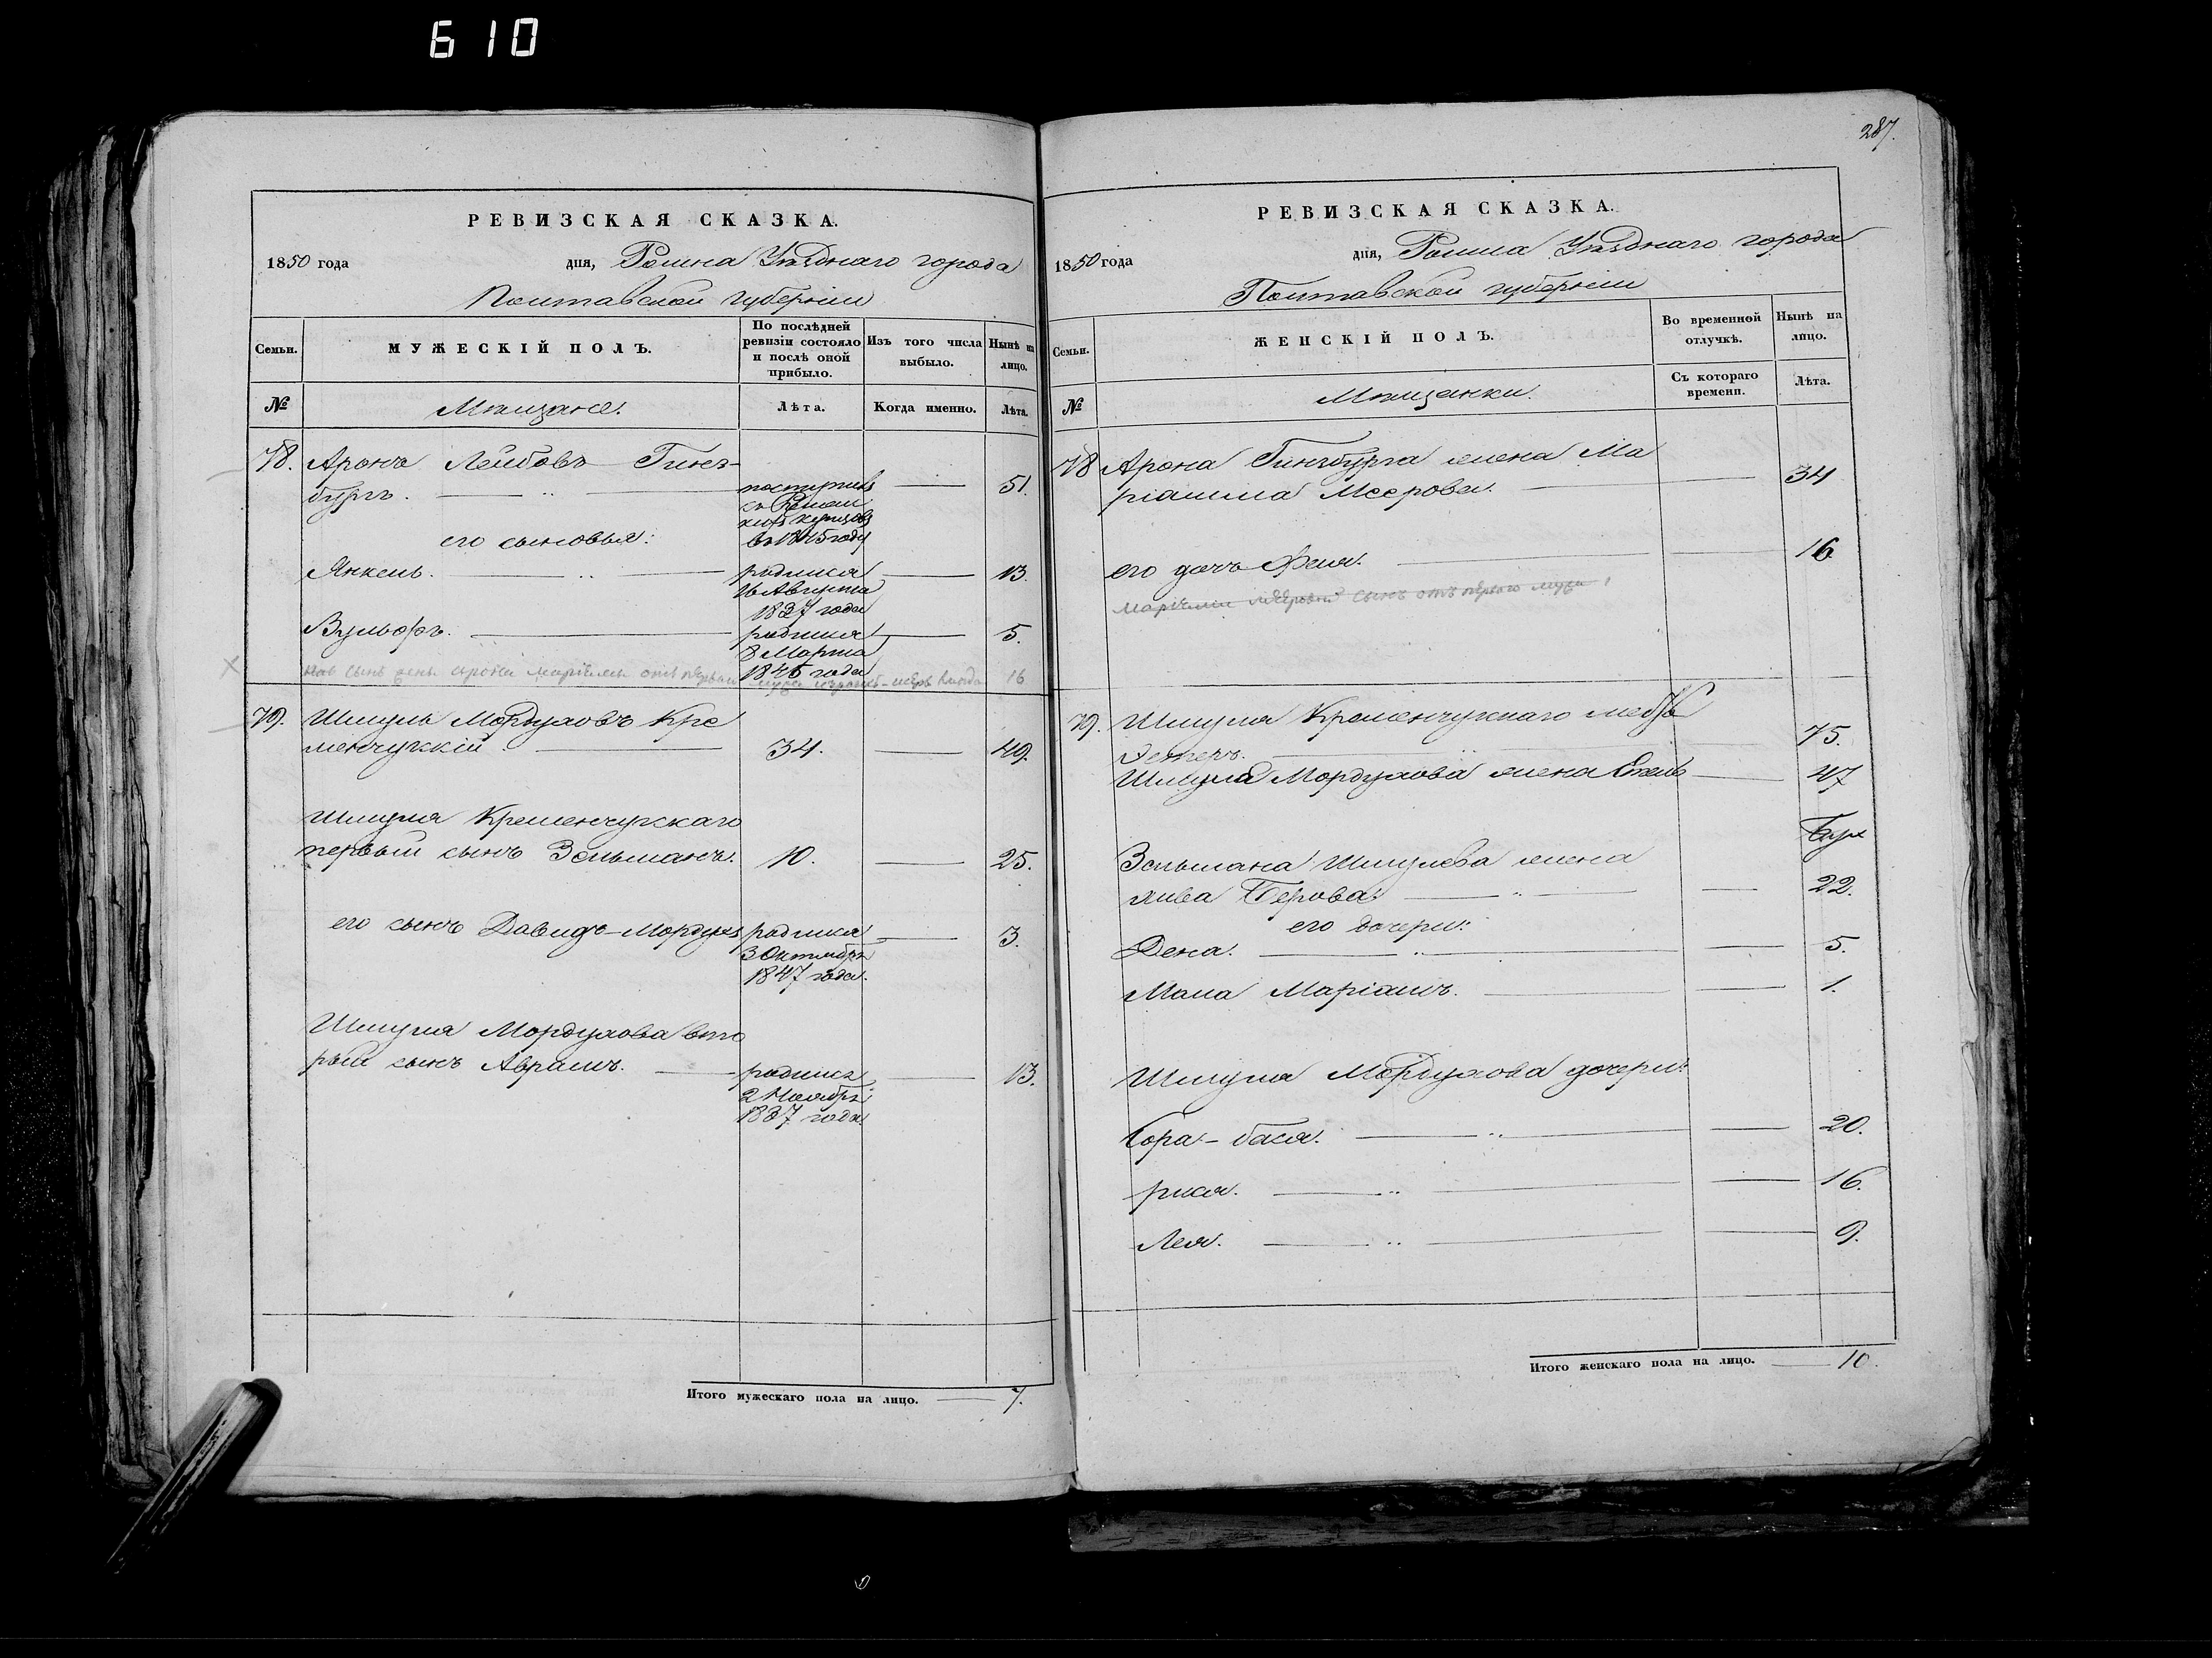 610
287.
РЕВИЗСКАЯ СКАЗКА.
1850 года дня, Ромна Уѣзднаго города
Полтавской губерніи
Семьи.
МУЖЕСКІЙ ПОЛЪ.
По послѣдней ревизіи состояло и послѣ оной прибыло.
Изъ того числа выбыло.
Нынѣ на лицо.
№
Мѣщане.
Лѣта.
Когда именно.
Лѣта.
78. Аронъ Лейбовъ Гинз-
бургъ. 51.
въ 1845 году
его сыновья:
Янкель. родился 13.
16 Августа
1837 года
Вульфъ. родился 5.
8 Марта
1845 года
сынъ отъ 16
79. Шмуль Мордуховъ Кре
менчугскій 34. 49.
Шмуля Кременчугскаго
первый сынъ Зельманъ. 10. 25.
его сынъ Давидъ-Мордухъ родился 3.
3 Октября
1847 года.
Шмуля Мордухова вто
рый сынъ Абрамъ. родился 13.
2 Ноября
1837 года.
Итого мужескаго пола на лицо. 7.
РЕВИЗСКАЯ СКАЗКА.
1850 года дня, Ромна Уѣзднаго города
Полтавской губерніи
Семьи.
ЖЕНСКІЙ ПОЛЪ.
Во временной отлучкѣ.
Нынѣ на лицо.
№
Мѣщанки.
Съ котораго времени.
Лѣта.
78 Арона Гинзбурга жена Ма
ріамма Меерова. 34
его дочь Фейя. 16
сынъ отъ перваго мужа
79. Шмуля Кременчугскаго мать
Эстеръ. 75.
Шмуля Мордухова жена 47
Зельмана Шмулева жена
Хива Берова. 22.
его дочери:
Дена. 5.
Маша Маріамъ. 1.
Шмуля Мордухова дочери:
Сора-бася. 20.
рися. 16.
Лея. 9.
Итого женскаго пола на лицо. 10.